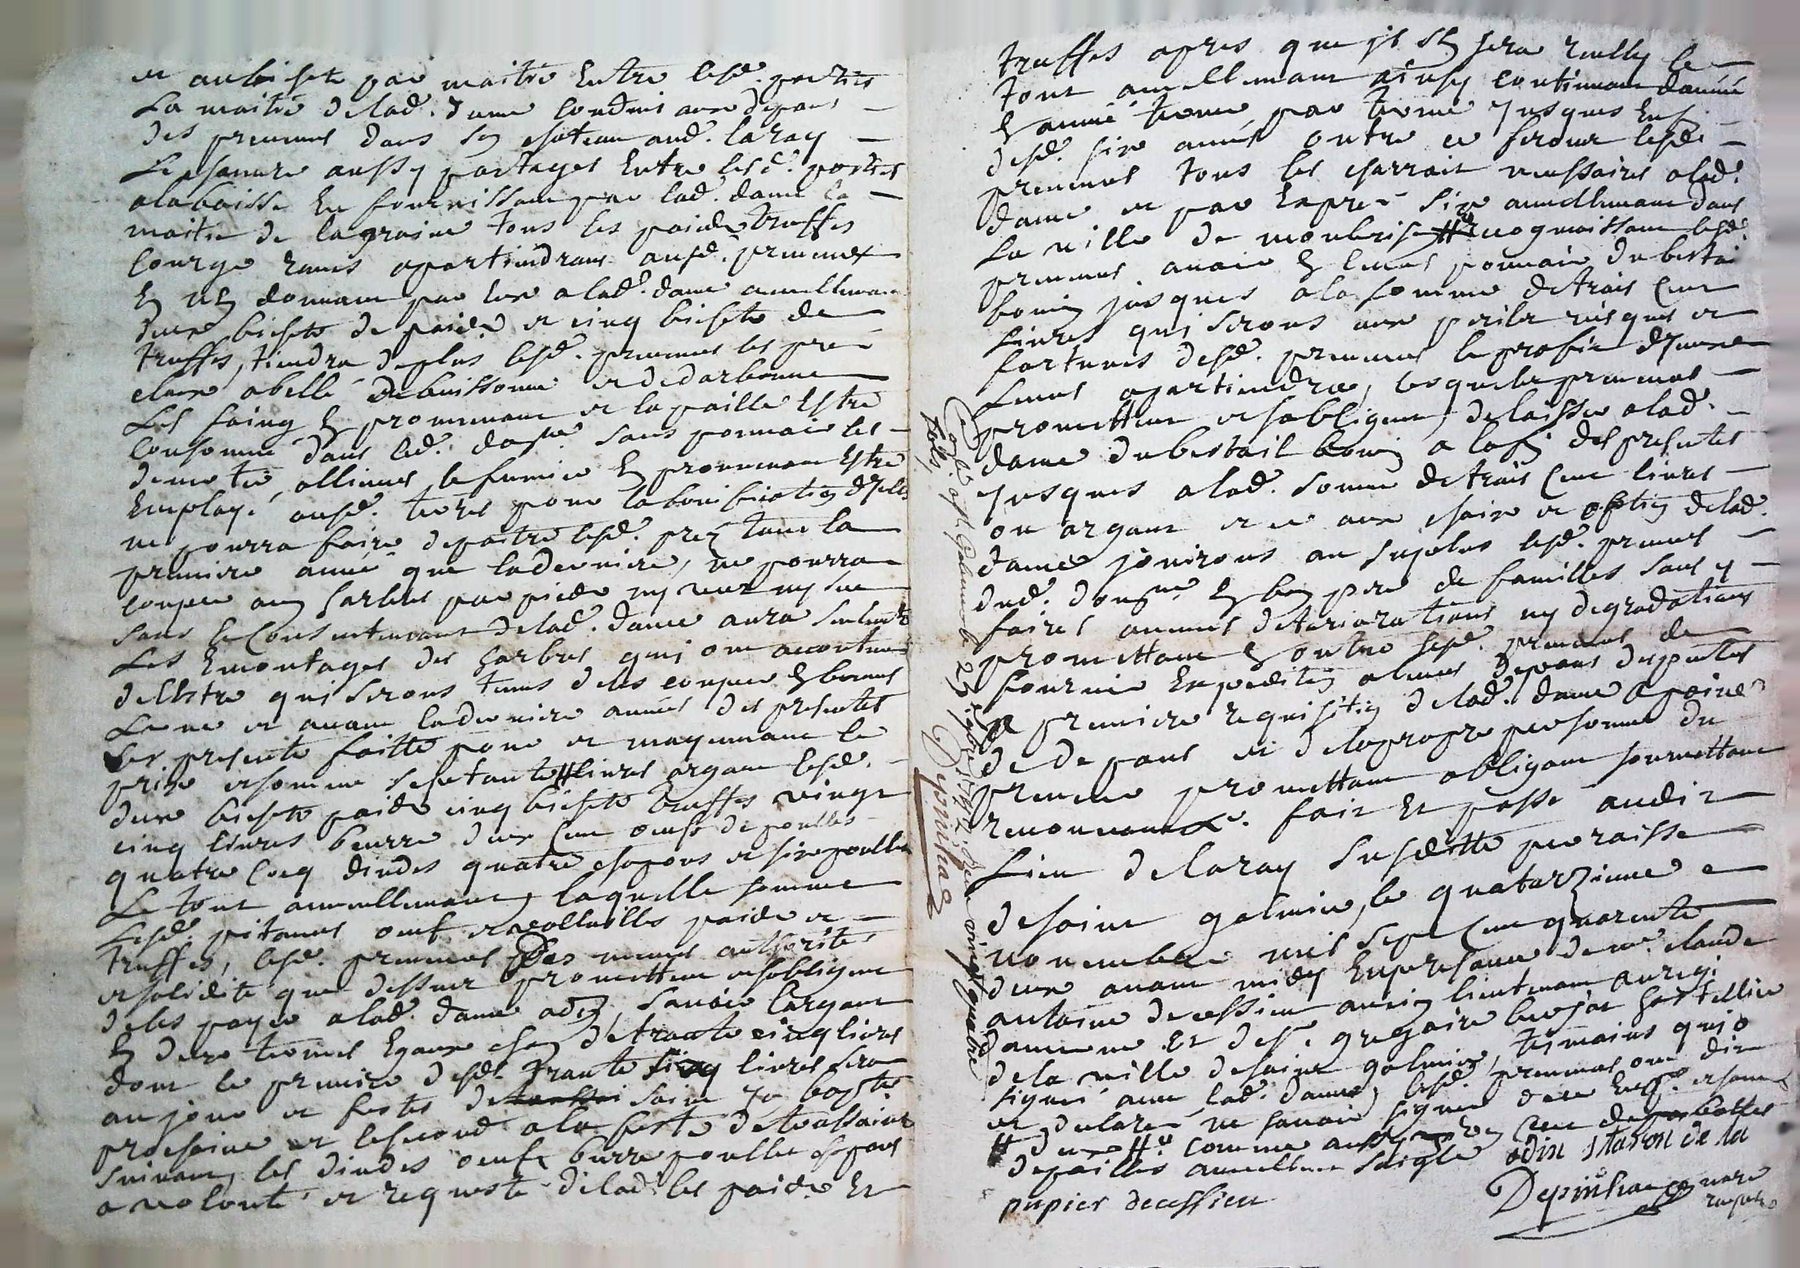 et au bichet par maitié Entre lesd. parties
La moitié de lad. dame conduis aux depans
des preneurs dans son chateau aud. laray
Le chanvre aussy partages Entre lesd. parties
alabaisse En fournissant par lad. dame la
moitié de lagraine tous les poids truffes
courge raves apartiendrons ausd. preneurs
En En donnant par Eux alad. dame annuellement
deux bichets de poids et cinq bichets de
truffes, tiendra deplus lesd. preneurs les pre
claux abellé debuissonne et dedarbonne
Les foing En provenant et la paille Estre
consommé dans led. dom.ne sans pouvoir les
demetre, allieurs, le fumier En provenant Estre
Employé ausd. terres pour la bonification d'Icelles
ne pourra faire depaitre lesd. prez tant la
premiere année que laderniere, ne pourra
couper aucun harbres par pieds ny
sans le Consentement delad. dame aura seulement
Les Emontages des harbres qui ont accoutumé
dellstre qui serons tenus deles couper En bonnes
Lune et avant laderniere année des presentes
Les presente faitte pour et moyennant le
prix et somme septante livres argant lesd.
deux bichets poids cinq bichets truffes vingt
cinq livres beurre deux cent oeufs de poulles
quatre Coq dindes quatre chapons et six poulles
Le tout annuellement, laquelle somme
Lesd. pitances oeufs et vollailles poids et
truffes, lesd. preneurs Des memes authorités
et solidité que dessus promettent et sobligent
deles payer alad. dame odin, savoir l'argant
En deux termes Egaux chacun detrante cinq livres
dont le premier desd. trante cinq livres sera
au jour et festes de saint Jn bapte
prochaine et lesecond ala feste detoussaint
suivant, les dindes oeufs burre poulles chapons
a volonté et requeste delad. les poids Et
truffes apres que Jls sen sera ceully le
tout annellemant ainsy continuant dannée
En année terme par terme Jusques Enfin
desd. six année outre ce feront lesd.
preneurs tous les charrait necessaires alad.
dame et par Exprés six annuellement dans
La ville de monbrison recognoissant lesd.
preneurs avoir En leurs pouvoir du bestail
bovin jusques ala somme detrois Cent
livres qui serons aux perils risques et
fortunes desd. preneurs le profit d'Iceux
Leurs apartiendra, lesquels preneurs
promettent et sobligent, delaisser alad.
dame du bestail bovin a lafin des presentes
Jusques alad. somme detrois Cent livres
ou argant et ce aux choix et option delad.
dame jouirons au surplus lesd. preneurs
dud. domne En bon pere de familles sans y
faires aucunes deteriorations ny degradations
promettant En outre lesd. preneurs de
fournir Expedition aleurs depans des presentes
a premiere requisition delad. dame apeine
de depans et de la propre personne du
preneur promettant obligant soumettant
renonceant &a. fait Et passé audit
Lieu delaray susditte parroisse
desaint galmier, le quatorzieme
novembre mil sept Cent quarente
deux avant midy Enpresance de me claude
antoine decessieu ancien lieutenant auregi
et de sr. gregoire hostellier
dela ville desaint galmier, temoins qui
signé avec lad. dame, lesd. preneurs ont dit
et declarés ne savoir signer de ce Enqs. et sommés
deux comme aussy Cent de bottes
depailles annuellement seigle odin staron de la
papier decessieu
Depinhac nore
royal

Conlé a st. Galmier le 25. 9bre 1742 Reçu vingt quatre
sols,
Depinhac